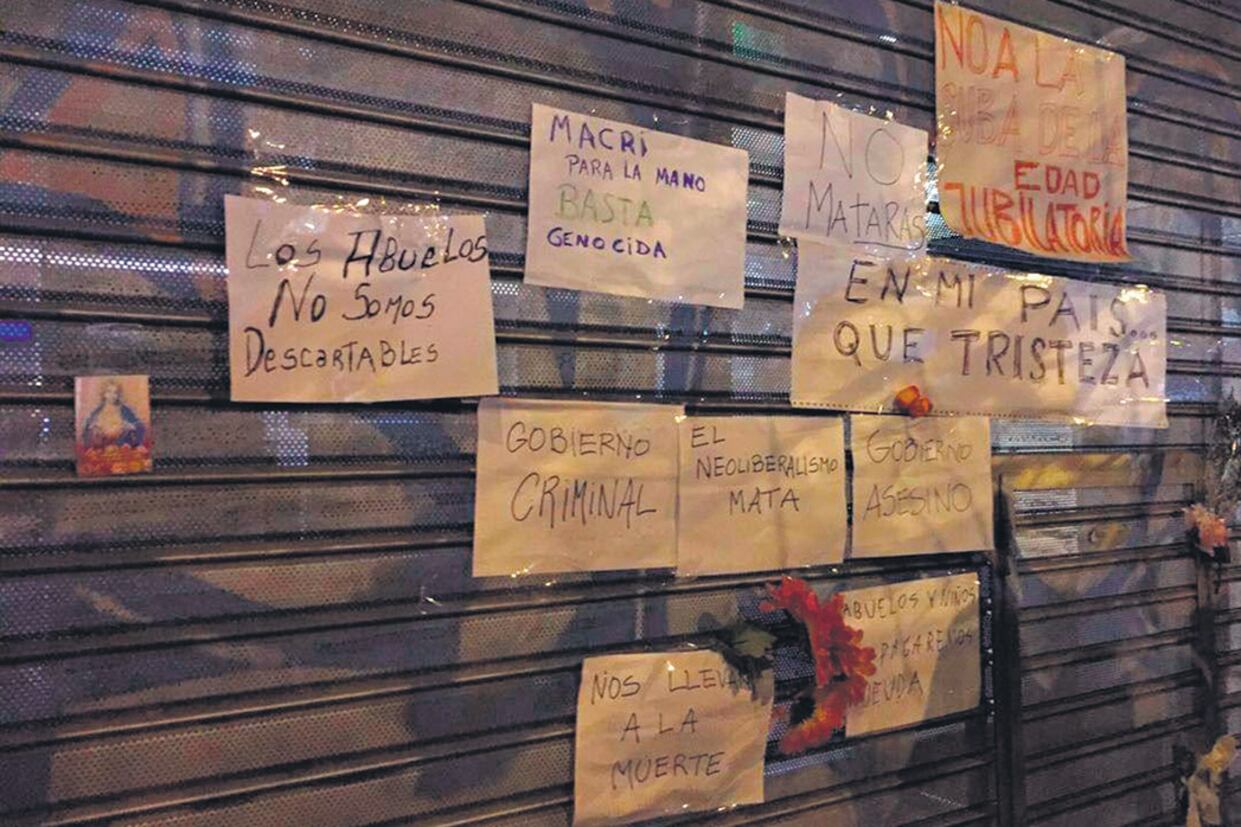 LOS ABUELOS
NO SOMOS
DESCARTABLES
MACRI
PARA LA MANO
BASTA
GENOCIDA
NO
MATARAS
NO A LA
SUBA DE LA
EDAD
JUBILATORIA
EN MI PAIS...
QUE TRISTEZA
GOBIERNO
CRIMINAL
EL
NEOLIBERALISMO
MATA
GOBIERNO
ASESINO
ABUELOS Y NIÑOS
PAGAREMOS
DEUDA
NOS LLEVAN
A LA
MUERTE